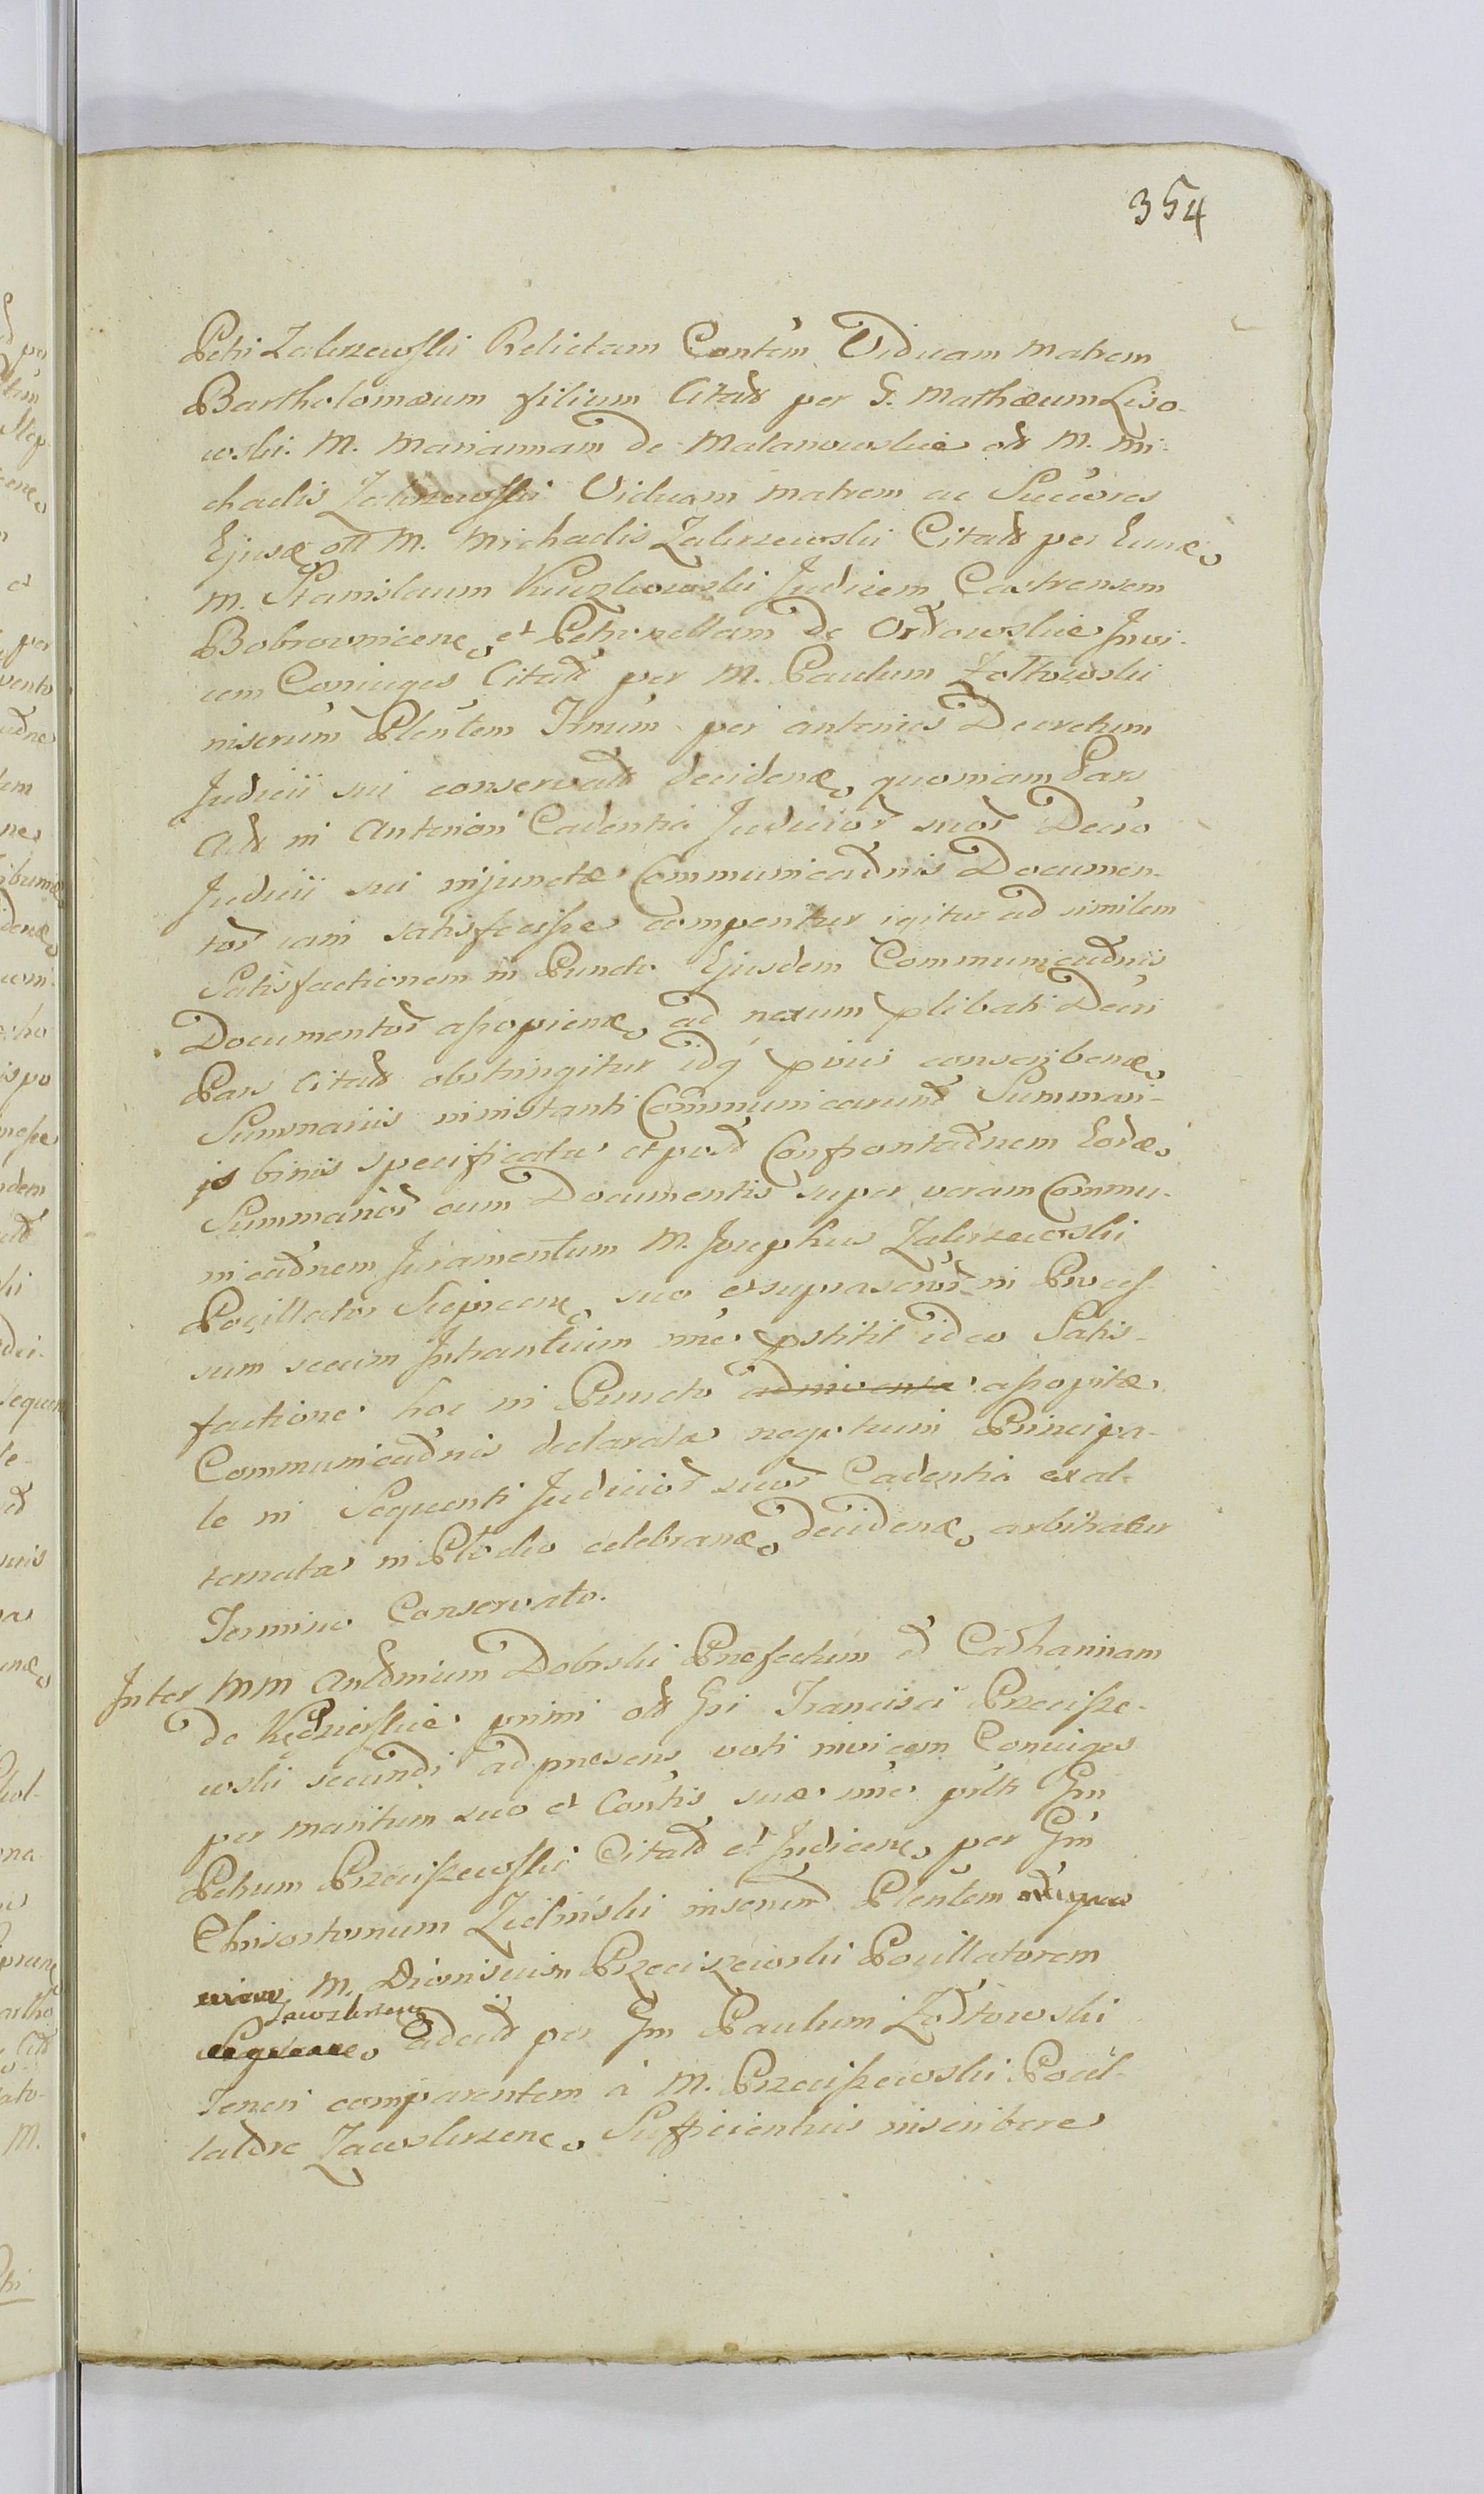 354
Petri Zakrzewski Relictam Contem Viduam matrem
Bartholomæum filium Citat per G. Mathæum Liso-
wski. M. Mariannam de Malanowskie ol M. Mi-
chaelis Zakrzewski Viduam matrem ac Succores
Ejusd olt M. Michaelis Zakrzewski Citat per Eund
M. Stanislaum Kuczkowski Judicem Castrensem
Bobrownicen et Petronellam de Orłowskie Invi-
cem Coniuges Citat per M. Paulum Żółtowski
niserum Plentem Trnum per anterius Decretum
Judicii sui conservat decidend quoniam Pars
Act in Anteriori Cadentia Judicior suor Decro
Judicii sui injunctæ Communicatnis Documen-
tor iam satisfecisse comperitur igitur ad similem
Satisfactionem in Puncto Ejusdem Communicatnis
Documentor assopiend ad nexum plibati Decri
Pars Citat obstringitur idq prius conscribend
Summariis ininstanti Communicarunt Summari-
is binis specificata et post Confrontatnem Eord
Summarior cum Documentis super veram Commu-
nicatnem Juramentum M. Josephus Zakrzewski
Pocillator Sierpcen suo et suprascrior in Proces-
sum secum Intrantium nne pstitit ideo Satis-
factione hoc in Puncto assopitæ
Communicatnis declarata negotium Principa-
le in Sequenti Judicior suor Cadentia exal-
ternata in Plocko celebrand decidend arbitratur
Termino Conservato.
Inter MM Antonium Dobrski Præfectum et Catharinam
de primi ol Gsi Francisci Przecisze-
wski secundi ad præsens voti invicem Coniuges
per maritum suo et Contis suæ nne prlt Gm
Petrum Przeciszewski Citat et Indicen per Gm
Chrisostomum Zieliński inserend Plentem
M. Dionisium Przeciszewski Pocillatorem
Zawskrzen adcit per Gm Paulum Żółtowski
Teneri comparentem à M. Przeciszewski Pocil-
latore Zawskrzene Sufficientius inscribere